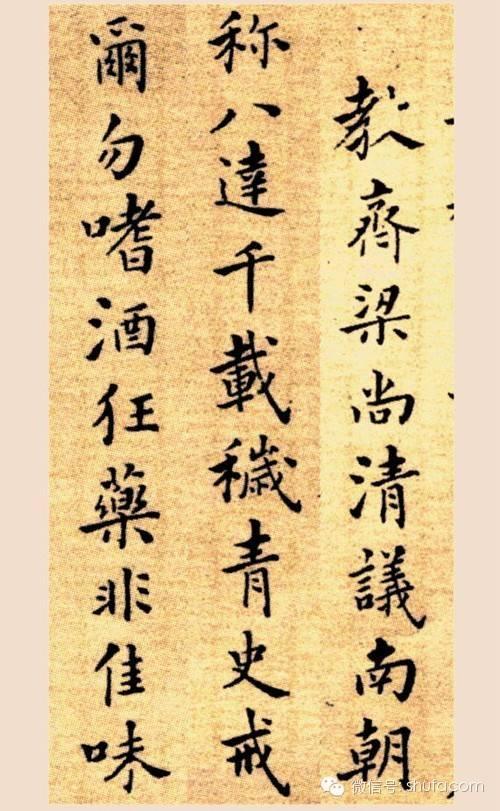 教齊梁尚清議南朝
称八達千載穢青史戒
爾勿嗜酒狂藥非佳味
微信号: shufa.com